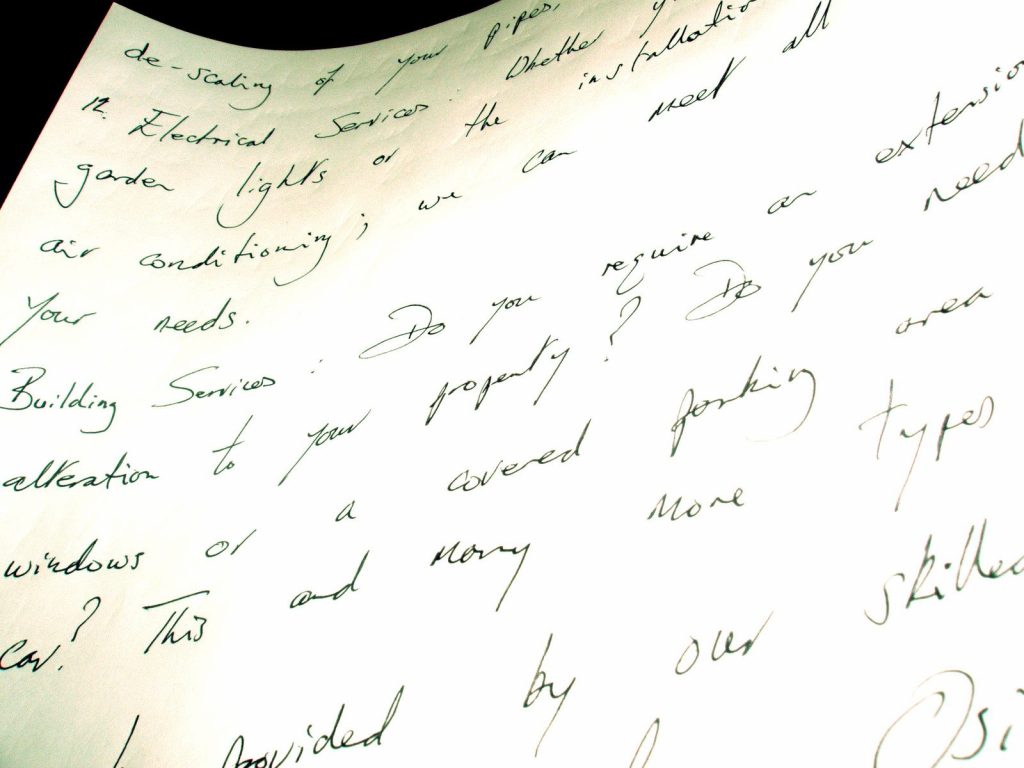 de-scaling of your pipes.
12. Electrical Services. Whether
garden lights or the installation
air conditioning; we can meet all
Your needs.
Building Services: Do you require an extensio
alteration to your property? Do you need
windows or a covered parking area
car? This and many more types
provided by our skilled
Osi